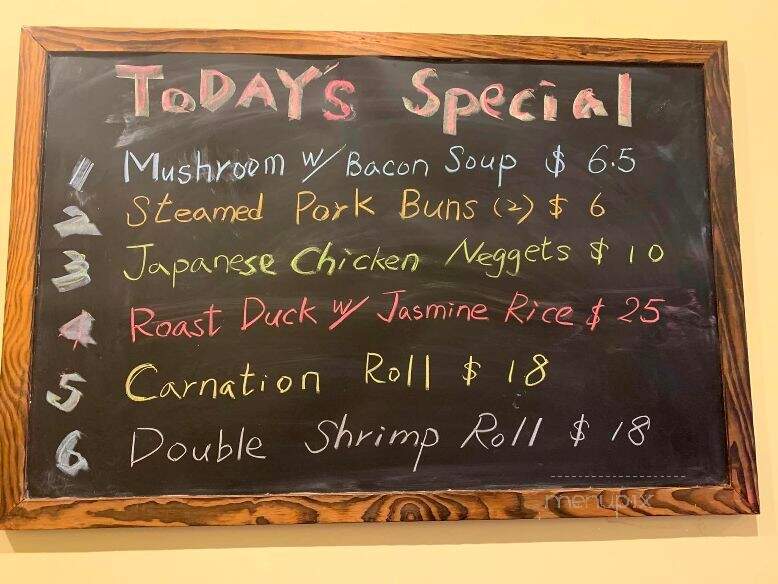 TODAY'S Special
1 Mushroom w/ Bacon Soup $ 6.5
2 Steamed Pork Buns (2) $ 6
3 Japanese Chicken Neggets $ 10
4 Roast Duck w/ Jasmine Rice $ 25
5 Carnation Roll $ 18
6 Double Shrimp Roll $ 18
menupix